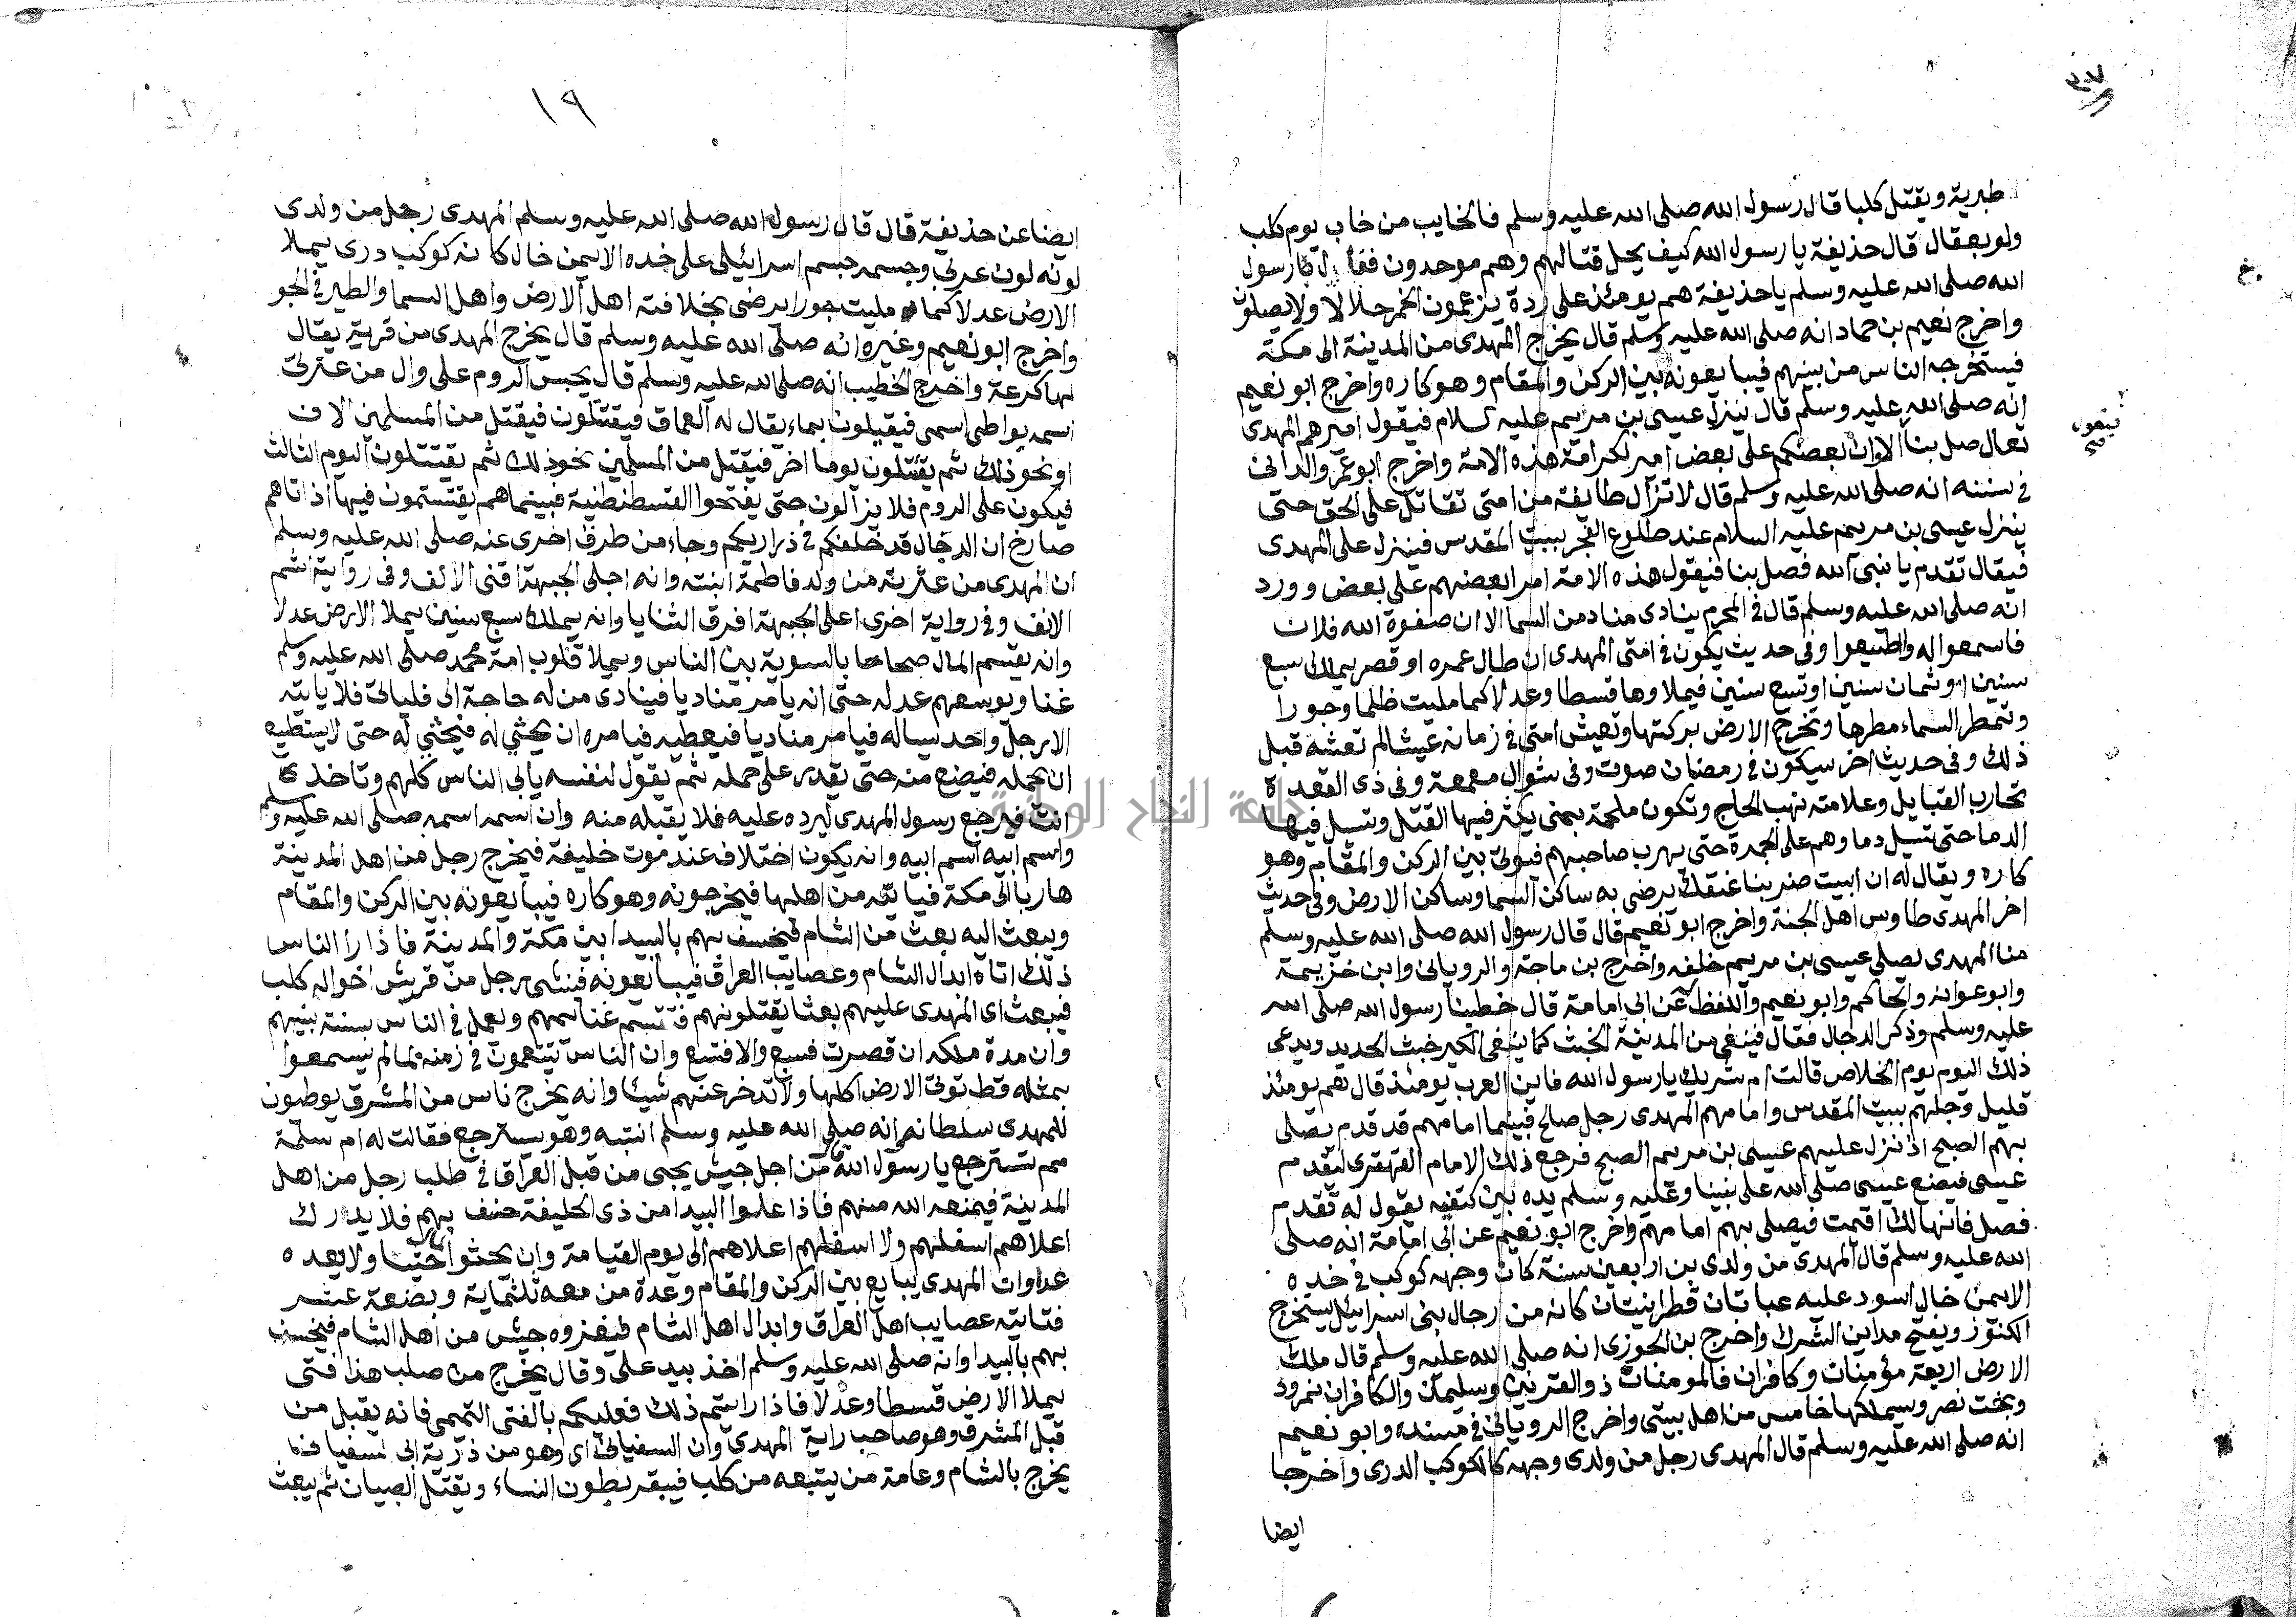 طبرية ويقتل كلبا قال رسول الله صلى الله عليه وسلم فالخايب من خاب يوم كلب
ولو بعقال قال حذيفة يا رسول الله كيف يحل قتالهم وهم موحدون فقال يا رسول
الله صلى الله عليه وسلم يا حذيفة هم يومئذ على ردة يزعمون الخمر حلالا ولا يصلون
واخرج نعيم بن حماد انه صلى الله عليه وسلم قال يخرج المهدى من المدينة الى مكة
فيستخرجه الناس من بينهم فيبايعونه بين الركن والمقام وهو كاره واخرج ابو نعيم
انه صلى الله عليه وسلم قال ينزل عيسى بن مريم عليه السلام فيقول اميرهم المهدى
فيقول
تعال صل بنا الا وان بعضكم على بعض امير لكرامة هذه الامة واخرج ابو عمرو الدانى
فى سننه انه صلى الله عليه وسلم قال لا تزال طايفة من امتى تقاتل على الحق حتى
ينزل عيسى بن مريم عليه السلام عند طلوع الفجر ببيت المقدس فينزل على المهدى
فيقال تقدم يا نبى الله فصل بنا فيقول هذه الامة امرا بعضهم على بعض وورد
انه صلى الله عليه وسلم قال فى المحرم ينادى مناد من السما الا ان صفوة الله فلان
فاسمعوا له واطيعوا وفى حديث يكون فى امتى المهدى ان طال عمره او قصر يملك سبع
سنين او ثمان سنين او تسع سنين فيملاوها قسطا وعدلا كما مليت ظلما وجورا
وتمطر السماء مطرها وتخرج الارض بركتها وتعيش امتى فى زمانه عيشا لم تعشه قبل
ذلك وفى حديث اخر سيكون فى رمضان صوت وفى شوال معمعة وفى ذى القعدة
تحارب القبايل وعلامته نهب الحاج وتكون ملحمة بمنى يكثر فيها القتل وتسيل فيها
الدما حتى تسيل دماوهم على الجمرة حتى يهرب صاحبهم فيوتى بين الركن والمقام وهو
كاره ويقال له ان ابيت ضربنا عنقك يرضى به ساكن السما وساكن الارض وفى حديث
اخر المهدى طاوس اهل الجنة واخرج ابو نعيم قال قال رسول الله صلى الله عليه وسلم
منا المهدى يصلى عيسى بن مريم خلفه واخرج بن ماجة والرويانى وابن خزيمة
وابو عوانة والحاكم وابو نعيم واللفظ له عن ابى امامة قال خطبنا رسول الله صلى الله
عليه وسلم وذكر الدجال فقال فينفى من المدينة الخبث كما ينفى الكير خبث الحديد ويدعى
ذلك اليوم يوم الخلاص قالت ام شريك يا رسول الله فاين العرب يومئذ قال هم يومئذ
قليل وجلهم ببيت المقدس وامامهم المهدى رجل صالح فبينما امامهم قد قدم يصلى
بهم الصبح اذ نزل عليهم عيسى بن مريم الصبح فرجع ذلك الامام القهقرى ليتقدم
عيسى فيضع عيسى صلى الله على نبينا وعليه وسلم يده بين كتفيه يقول له تقدم
فصل فانها لك اقيمت فيصلى بهم امامهم واخرج ابو نعيم عن ابى امامة انه صلى
الله عليه وسلم قال المهدى من ولدى بن اربعين سنة كان وجهه كوكب فى خده
الايمن خال اسود عليه عباتان قطرانيتان كانه من رجال بنى اسرائيل يستخرج
الكنوز ويفتح مداين الشرك واخرج بن الجوزى انه صلى الله عليه وسلم قال ملك
الارض اربعة مؤمنان وكافران فالمومنان ذو القرنين وسليمان والكافران نمرود
وبخت نصر وسيملكها خامس من اهل بيتى واخرج الرويانى فى مسنده وابو نعيم
انه صلى الله عليه وسلم قال المهدى رجل من ولدى وجهه كالكوكب الدرى واخرجا
ايضا
١٩
ايضا عن حذيفة قال قال رسول الله صلى الله عليه وسلم المهدى رجل من ولدى
لونه لون عربى وجسمه جسم اسرائيلى على خده الايمن خال كانه كوكب درى يملا
الارض عدلا كما مليت جورا يرضى بخلافته اهل الارض واهل السما والطير فى الجو
واخرج ابو نعيم وغيره انه صلى الله عليه وسلم قال يخرج المهدى من قرية يقال
لها كرعة واخرج الخطيب انه صلى الله عليه وسلم قال يحبس الروم على وال من عترتى
اسمه يواطى اسمى فيقبلون بماء يقال له العماق فيقتتلون فيقتل من المسلمين الاف
او نحو ذلك ثم يقتتلون يوما اخر فيقتل من المسلمين نحو ذلك ثم يقتتلون اليوم الثالث
فيكون على الروم فلا يزالون حتى يفتحوا القسطنطنية فبينما هم يقتسمون فيها اذ اتاهم
صارخ ان الدجال قد خلفكم فى ذراريكم وجاء من طرف اخرى عنه صلى الله عليه وسلم
ان المهدى من عترته من ولد فاطمة ابنته وانه اجلى الجبهة اقنى الانف وفى رواية اشم
الانف وفى رواية اخرى اعلى الجبهة افرق الثنايا وانه يملك سبع سنين يملا الارض عدلا
وانه يقسم المال صحاحا بالسوية بين الناس ويملا قلوب امة محمد صلى الله عليه وسلم
غنا ويوسعهم عدله حتى انه يامر مناديا فينادى من له حاجة الى فلياتى فلا ياتيه
الا رجل واحد يساله فيامر مناديا فيعطيه فيامره ان يحثى له فيحثى له حتى لا يستطيع
ان يحمله فيضع منه حتى يقدر على حمله ثم يقول لنفسه يابى الناس كلهم وتاخذى
انت فيرجع رسول المهدى ليرده عليه فلا يقبله منه وان اسمه اسمه صلى الله عليه وسلم
واسم ابيه اسم ابيه وانه يكون اختلاف عند موت خليفة فيخرج رجل من اهل المدينة
هاربا الى مكة فياتيه من اهلها فيخرجونه وهو كاره فيبايعونه بين الركن والمقام
ويبعث اليه بعث من الشام فيخسف بهم بالبيدا بين مكة والمدينة فاذا را الناس
ذلك اتاه ابدال الشام وعصايب العراق فيبايعونه فينشى رجل من قريش اخواله كلب
فيبعث اى المهدى عليهم بعثا يقتلونهم فتقسم غنائمهم ويعمل فى الناس بسنة نبيهم
وان مدة ملكه ان قصرت فسبع والا فتسع وان الناس يتنعمون فى زمنه بما لم يسمعوا
بمثله قط توتى الارض اكلها ولا تدخر عنهم شيئا وانه يخرج ناس من المشرق يوطون
للمهدى سلطانه وانه صلى الله عليه وسلم انتبه وهو يسترجع فقالت له ام سلمة
مم تسترجع يا رسول الله قال من اجل جيش يجى من قبل العراق فى طلب رجل من اهل
المدينة فيمنعه الله منهم فاذا علوا البيدا من ذى الحليفة خسف بهم فلا يدرك
اعلاهم اسفلهم ولا اسفلهم اعلاهم الى يوم القيامة وان يحثوا المال حثيا ولا يعده
عدا وان المهدى يبايع بين الركن والمقام وعدة من معه ثلثماية وبضعة عشر
فتاتيه عصايب اهل العراق وابدال اهل الشام فيغزوه جيش من اهل الشام فيخسف
بهم بالبيدا وانه صلى الله عليه وسلم اخذ بيد على وقال يخرج من صلب هذا فتى
يملا الارض قسطا وعدلا فاذا رايتم ذلك فعليكم بالفتى التميمى فانه يقبل من
قبل المشرق وهو صاحب راية المهدى وان السفيانى اى وهو من ذرية ابى سفيان
يخرج بالشام وعامة من يتبعه من كلب فيبقر بطون النساء ويقتل الصبيان ثم يبعث
جامعة النجاح الوطنية